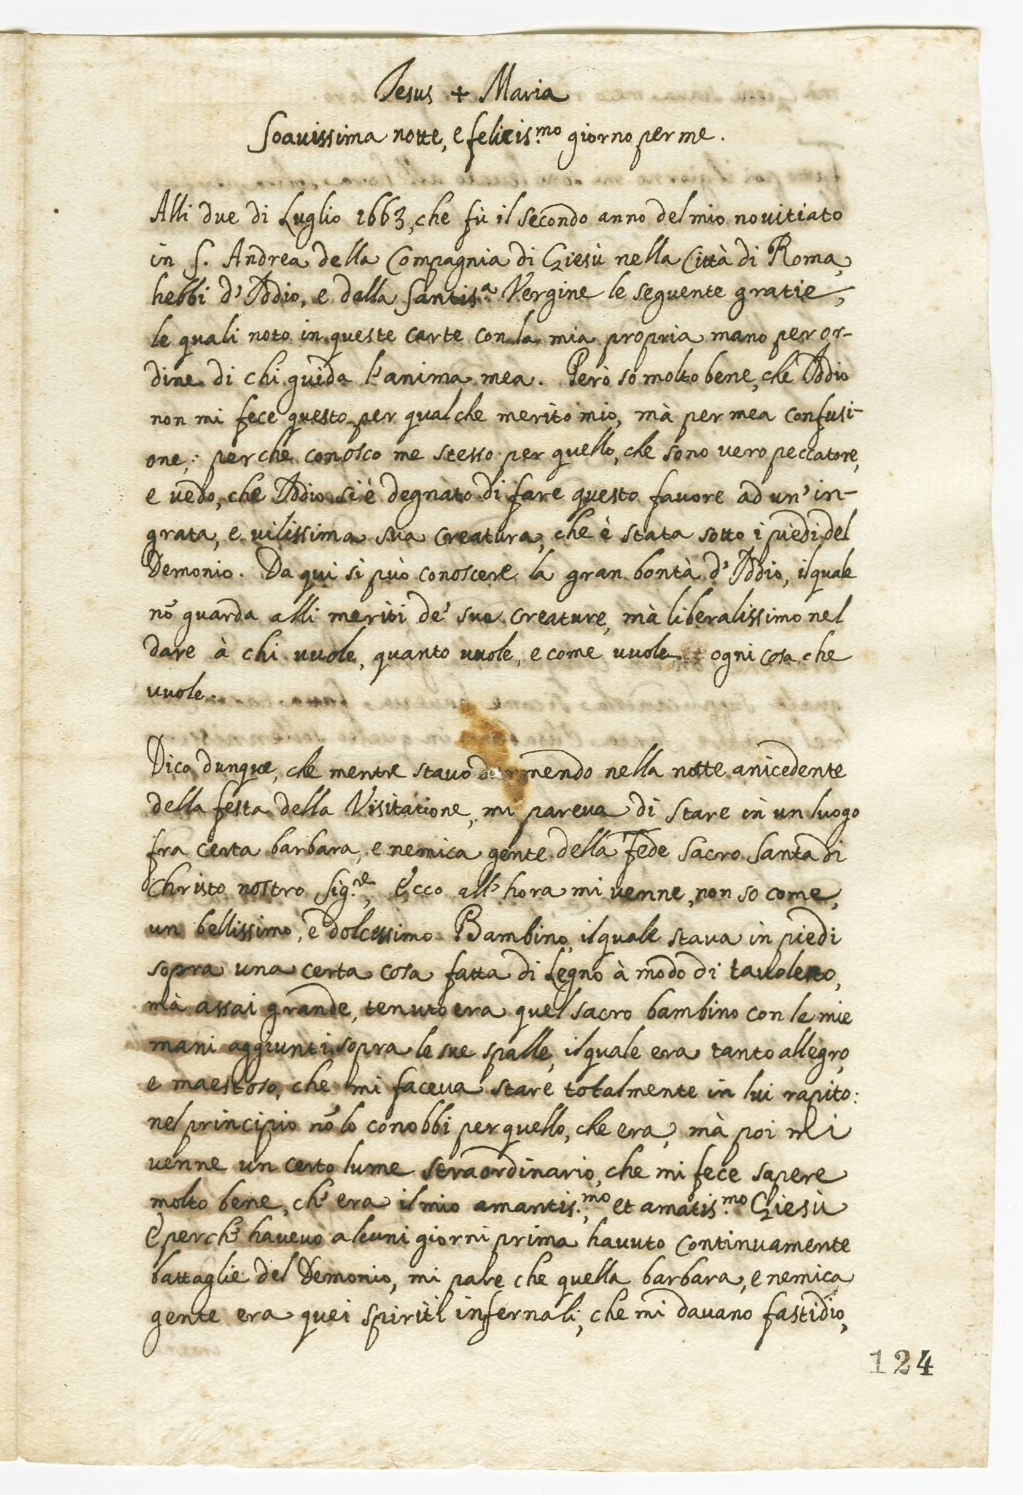 Jesus + Maria
Soauissima notte, e felicis.mo giorno per me.
Alli due di Luglio 1663, che fù il secondo anno del mio nouitiato
in S. Andrea della Compagnia di Giesù nella Città di Roma,
hebbi d'Iddio, e dalla Santis.a Vergine le seguente gratie,
le quali noto in queste carte con la mia propria mano per or-
dine di chi guida l'anima mea. Però so molto bene, che Iddio
non mi fece questo per qualche merito mio, mà per mea confusi-
one, perche conosco me stesso per quello, che sono vero peccatore,
e uedo, che Iddio si è degnato di fare questo fauore ad un' in-
grata, e uilissima sua creatura, che è stata sotto i piedi del
Demonio. Da qui si può conoscere la gran bontà d'Iddio, il quale
nō guarda alli meriti de' sue creature, mà liberalissimo nel
dare à chi uuole, quanto uuole, e come uuole ogni cosa che
uuole.
Dico dunque, che mentre stauo dormendo nella notte anicedente
della festa della Visitatione, mi pareua di stare in un luogo
fra certa barbara, e nemica gente della Fede sacro santa di
Christo nostro Sig.re, Ecco all'hora mi uenne, non so come,
un bellissimo, e dolcissimo Bambino, il quale staua in piedi
sopra una certa cosa fatta di legno à modo di tauoletto,
mà assai grande, tenuto era quel sacro bambino con le mie
mani aggiunti sopra le sue spalle, il quale era tanto allegro,
e maestoso, che mi faceua stare totalmente in lui rapito:
nel principio nō lo conobbi per quello, che era, mà poi mi
uenne un certo lume straordinario, che mi fece sapere
molto bene, ch'era il mio amantis.mo et amatis.mo Giesù
E perche haueuo alcuni giorni prima hauuto continuamente
battaglie del Demonio, mi pare che quella barbara, e nemica
gente era quei spiriti infernali, che mi dauano fastidio,
124